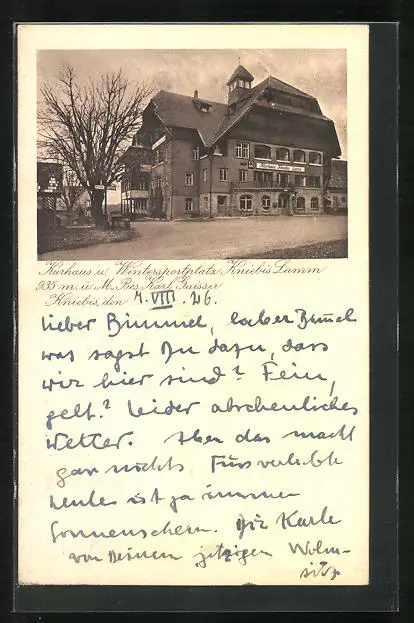 Kurhaus u. Wintersportplatz Kniebis Lamm
935 m. ü. M. Bes. Karl Gaisser
Kniebis, den 4. VIII. 26.
Lieber Bimmel, lieber
was sagst Du dazu, dass
wir hier sind? Fein,
gelt? Leider abscheuliches
Wetter. Aber das macht
gar nichts. Für verliebte
Leute ist ja immer
Sonnenschein. Die Karte
von Deinem jetzigen Wohn-
sitz